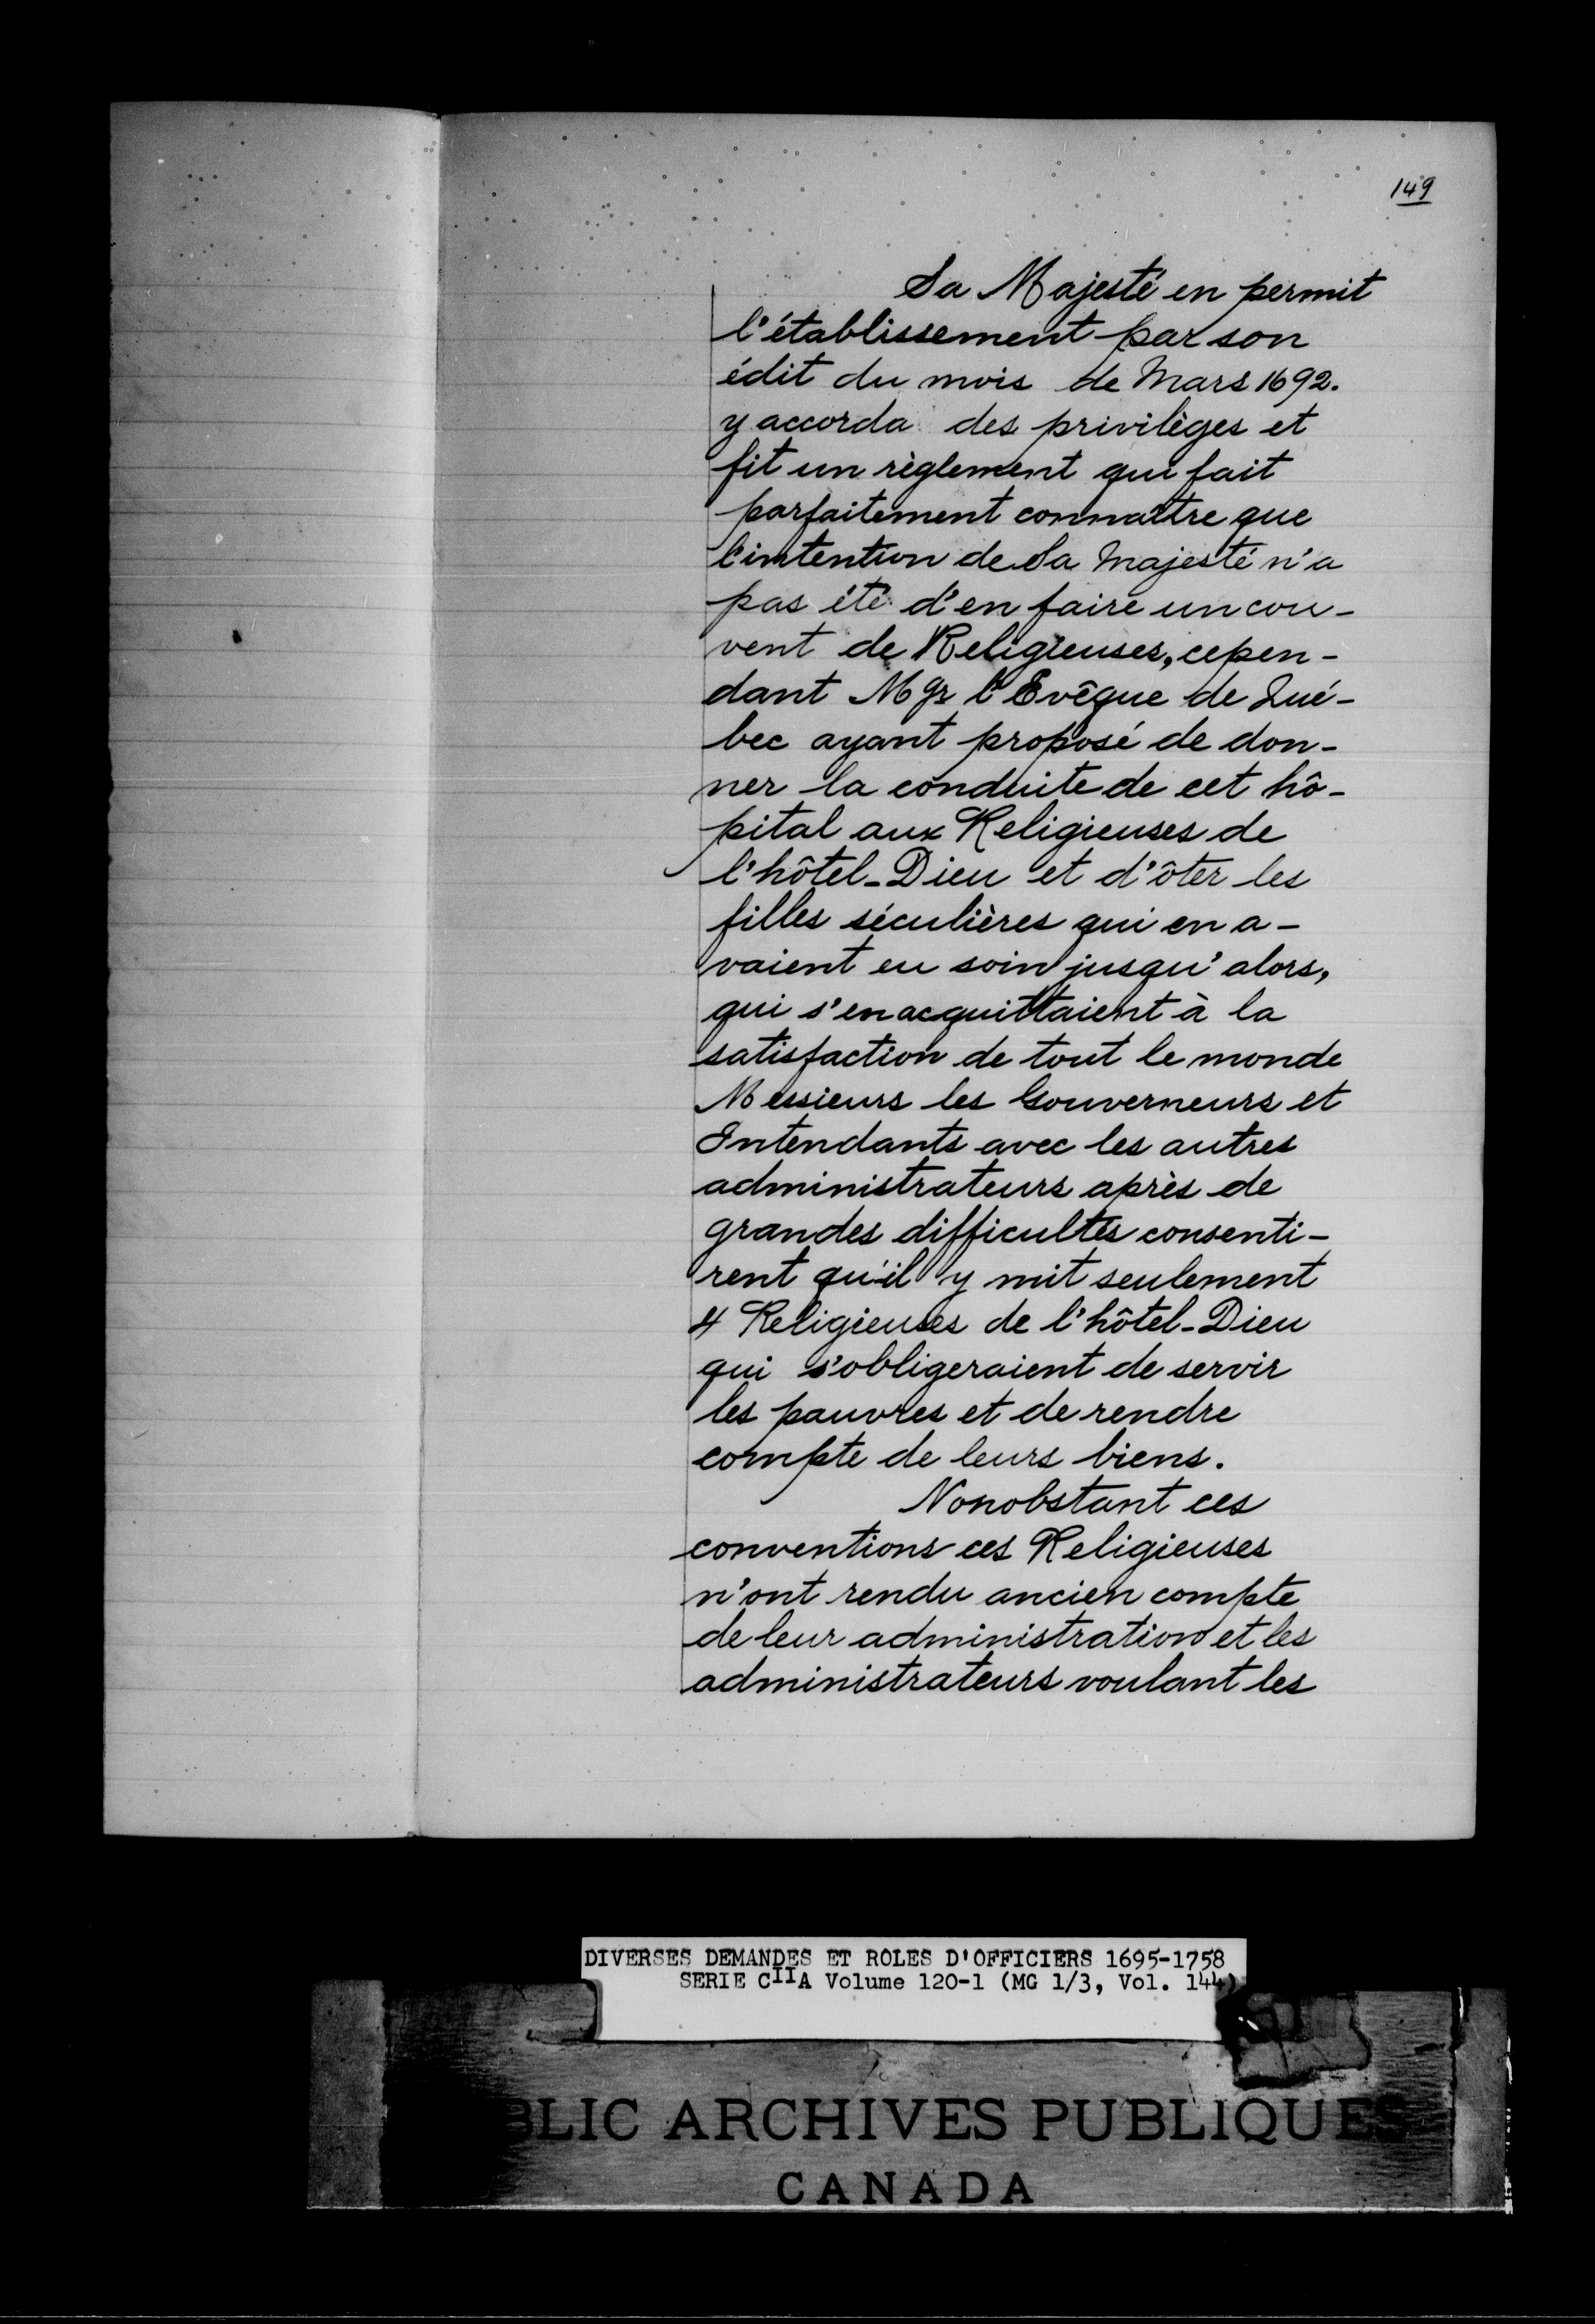 149
Sa Majesté en permit
l'établissement par son
édit du mois de Mars 1692.
y accorda des privilèges et
fit un règlement qui fait
parfaitement connaître que
l'intention de Sa Majesté n'a
pas été d'en faire un cou-
vent de Religieuses, cepen-
dant Mgr l'Evêque de Qué-
bec ayant proposé de don-
ner la conduite de cet hô-
pital aux Religieuses de
l'hôtel-Dieu et d'ôter les
filles séculières qui en a-
vaient eu soin jusqu'alors,
qui s'en acquittaient à la
satisfaction de tout le monde
Messieurs les Gouverneurs et
Intendants avec les autres
administrateurs après de
grandes difficultés consenti-
rent qu'il y mit seulement
4 Religieuses de l'hôtel-Dieu
qui s'obligeraient de servir
les pauvres et de rendre
compte de leurs biens.
Nonobstant ces
conventions ces Religieuses
n'ont rendu ancien compte
de leur administration et les
administrateurs voulant les
DIVERSES DEMANDES ET ROLES D'OFFICIERS 1695-1758
SERIE CIIA Volume 120-1 (MG 1/3, Vol. 144)
BLIC ARCHIVES PUBLIQUES
CANADA